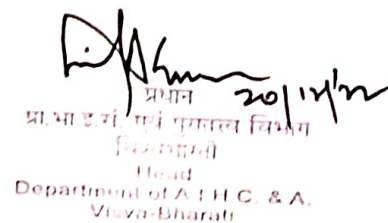 प्रधान 20/12/22
प्रा.भा.इ.सं. एवं पुरातत्त्व विभाग
विश्वभारती
Head
Department of A I H C. & A.
Visva-Bharati